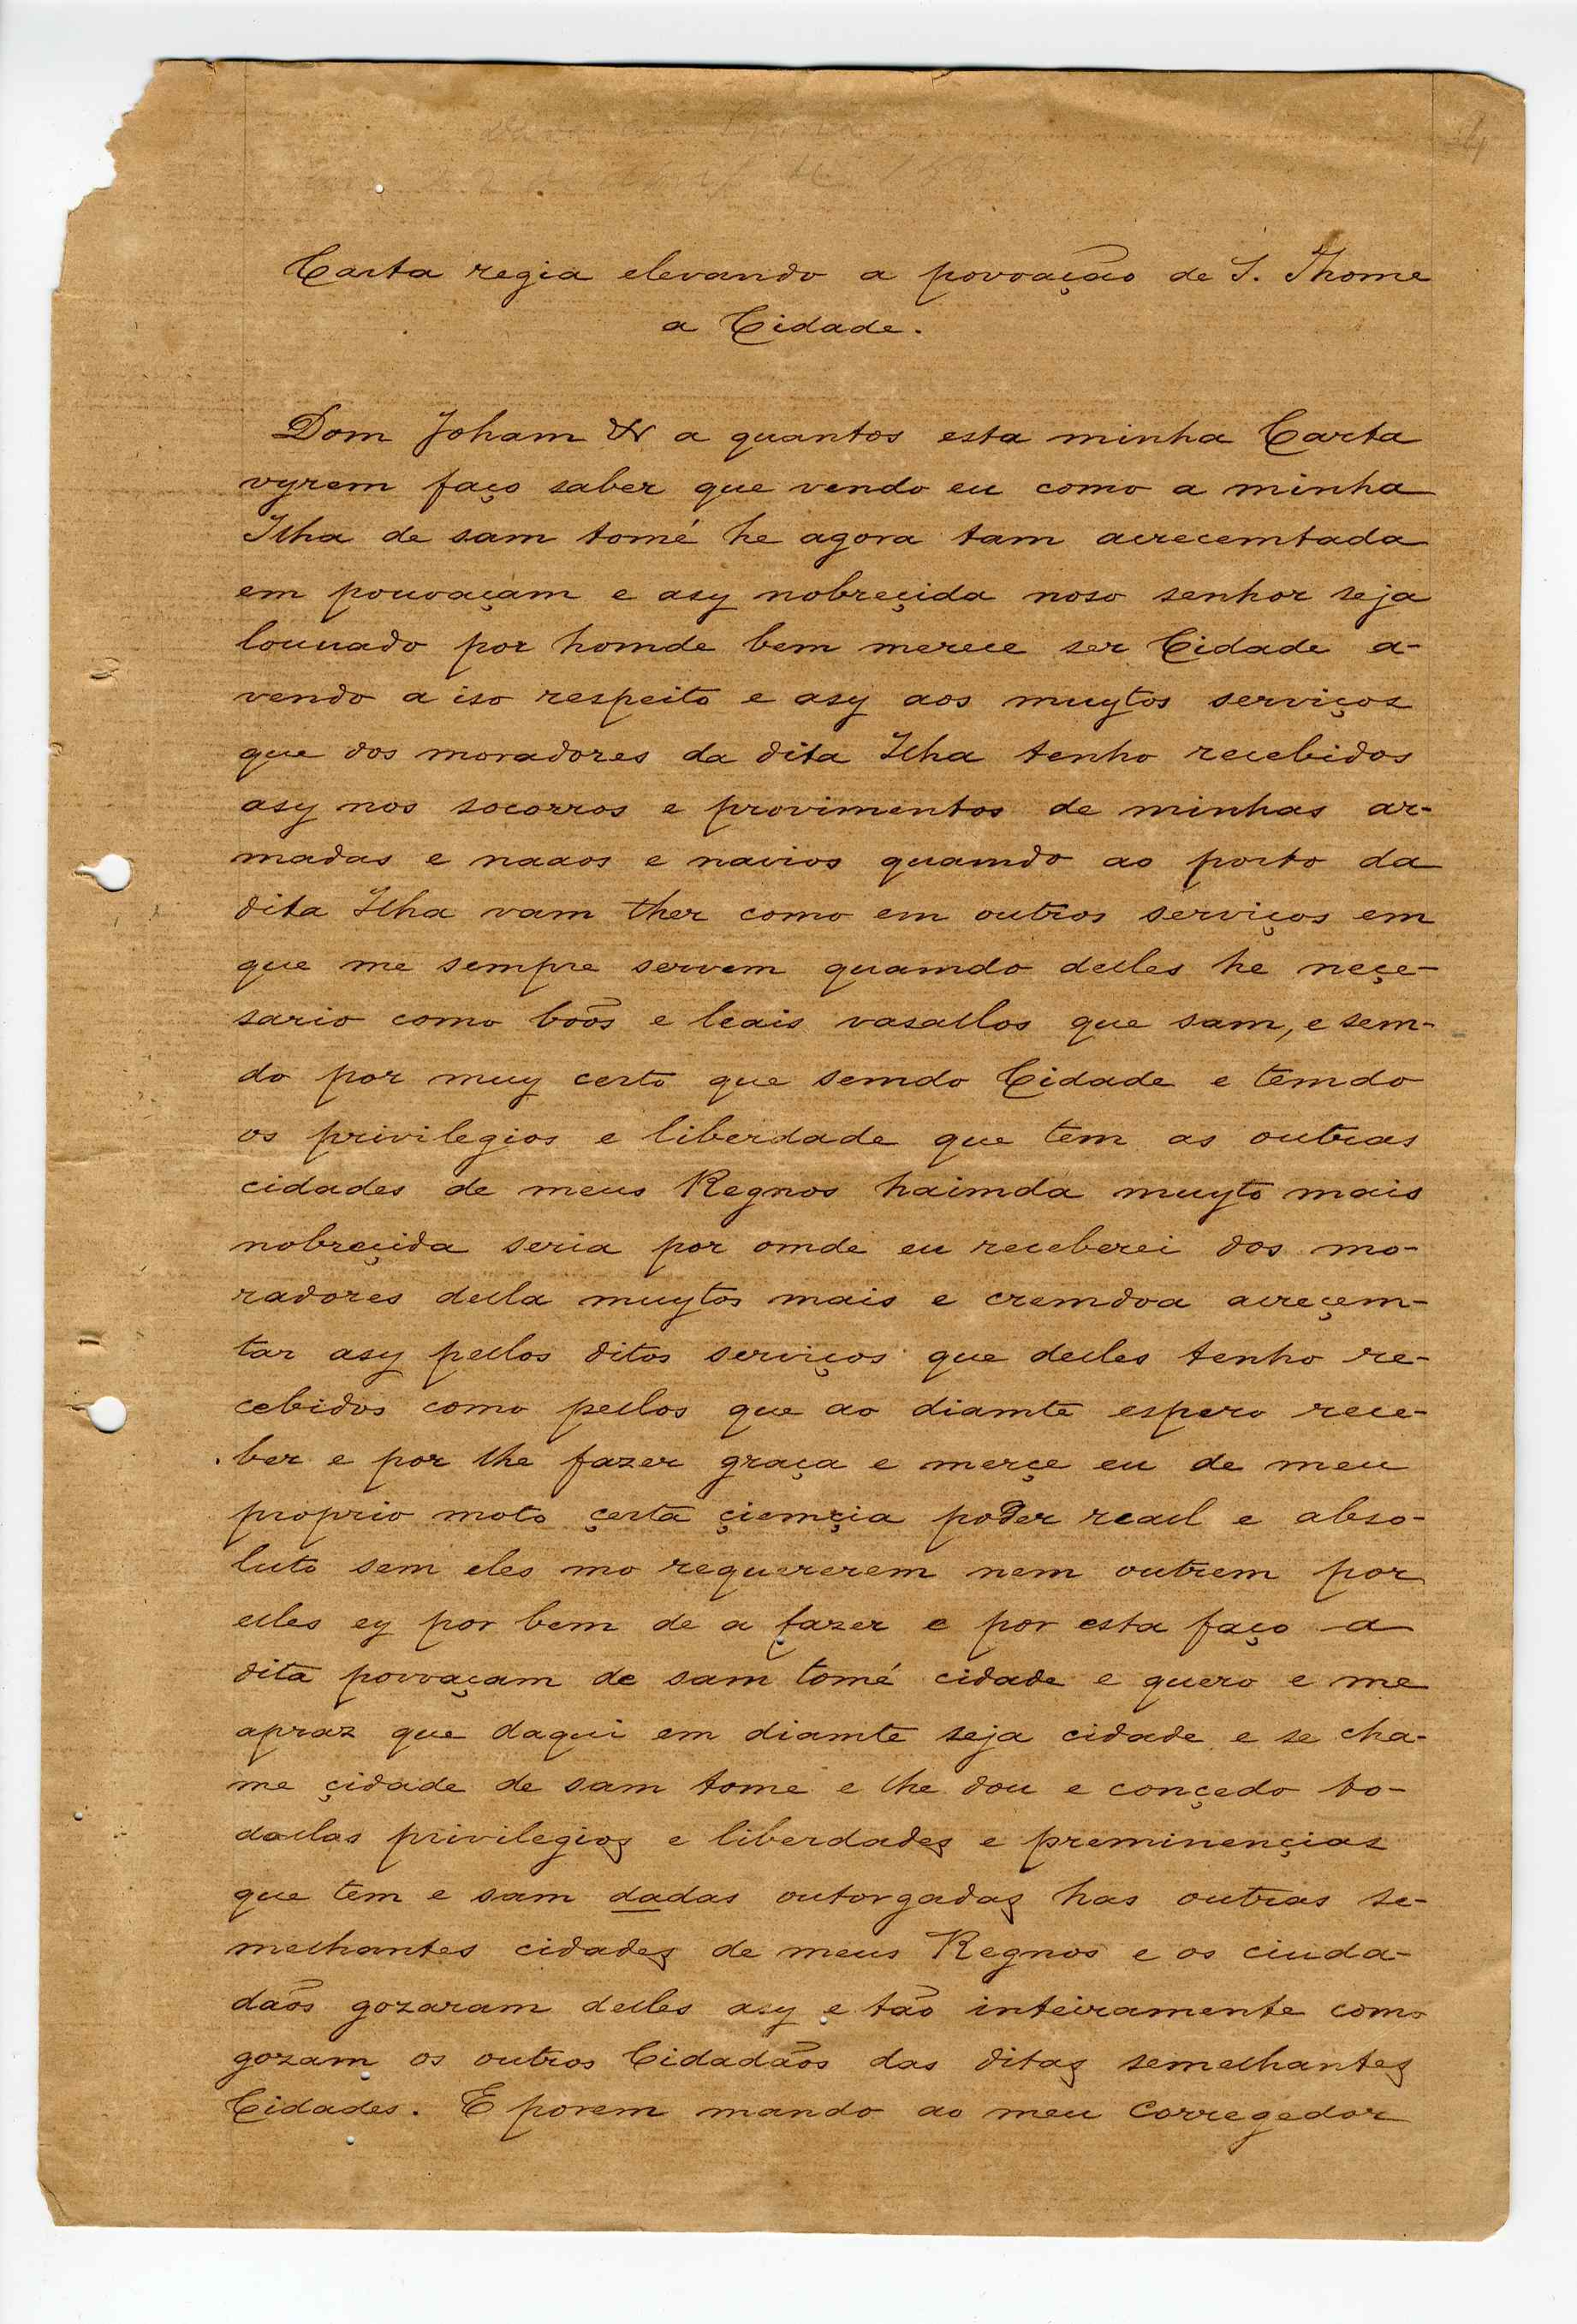 Carta regia elevando a povoação de S. Thome
a Cidade.
Dom Joham & a quantos esta minha Carta
vyrem faço saber que vendo eu como a minha
Ilha de sam tomé he agora tam acrecemtada
em pouvaçam e asy nobreçida noso senhor seja
louuado por homde bem merece ser Cidade a-
vendo a iso respeito e asy aos muytos serviços
que dos moradores da dita Ilha tenho recebidos
asy nos socorros e provimentos de minhas ar-
madas e naaos e navios quamdo ao porto da
dita Ilha vam ther como em outros serviços em
que me sempre servem quamdo delles he neçe-
sario como boõs e leais vasallos que sam, e sem-
do por muy certo que semdo Cidade e temdo
os privilegios e liberdade que tem as outras
cidades de meus Regnos haimda muyto mais
nobreçida seria por omde eu receberei dos mo-
radores della muytos mais e cremdoa acreçem-
tar asy pellos ditos serviços que delles tenho re-
cebidos como pellos que ao diamte espero rece-
ber e por lhe fazer graça e merçe eu de meu
proprio moto çerta çiemçia poder reall e abso-
luto sem eles mo requererem nem outrem por
elles ey por bem de a fazer e por esta faço a
dita povoaçam de sam tomé cidade e quero e me
apraz que daqui em diamte seja cidade e se cha-
me çidade de sam tome e lhe dou e conçedo to-
dallas privilegios e liberdades e preminençias
que tem e sam dadas outorgadas has outras se-
melhantes cidades de meus Regnos e os ciuda-
dãos gozaram delles asy e tão inteiramente como
gozam os outros Cidadãos das ditas semelhantes
Cidades. E porem mando ao meu Corregedor